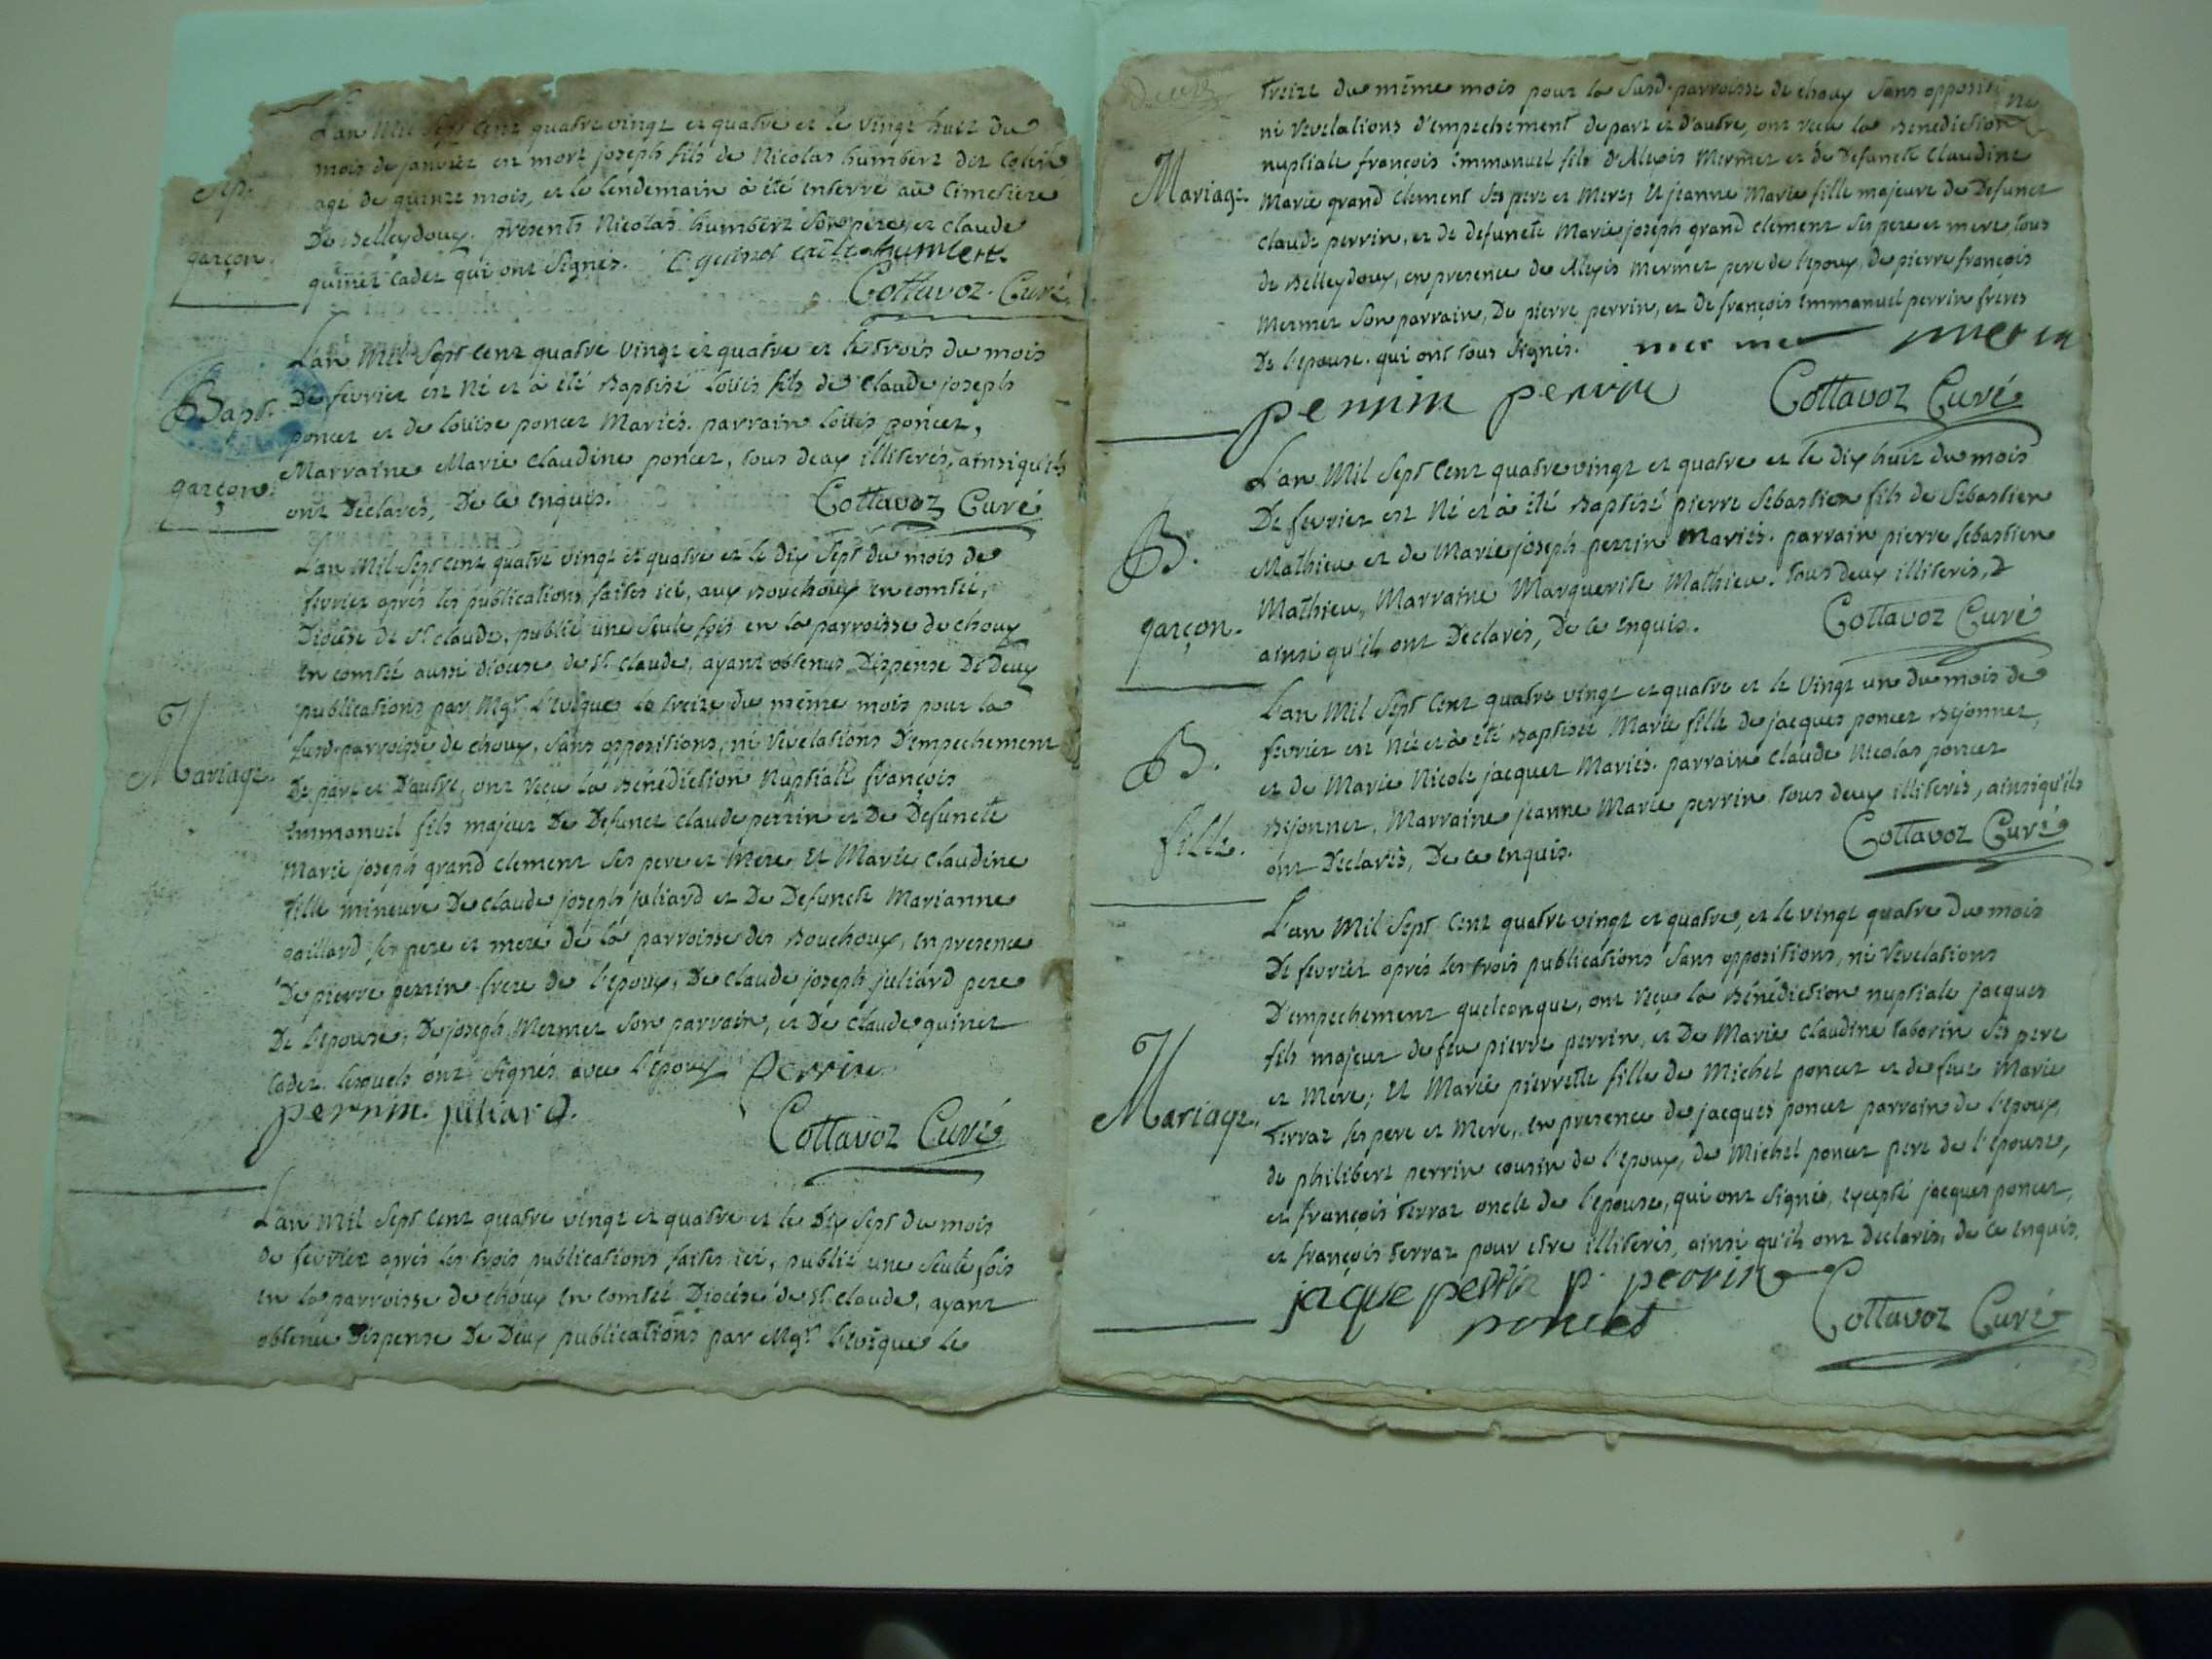 L'an Mil Sept Cent quatre vingt et quatre et le vingt huit du
mois de janvier est mort joseph fils de Nicolas humbert dit
agé de quinze mois, et le lendemain à été enterré au Cimetiere
De Belleydoux. presents Nicolas humbert Son pere, et claude
guinet cadet qui ont Signés. C guinet cadet humbert
Sep.
garçon.
Cottavoz. Curé.
L'an Mil Sept Cent quatre vingt et quatre et le trois du mois
De fevrier est Né et à été Baptisé Louis fils de claude joseph
poncet et de Louise poncet Mariés. parrain Louis poncet,
Marraine Marie claudine poncet, tous deux illiterés, ainsi qu'ils
ont Declarés, De ce enquis. Cottavoz Curé
Bapt.
garçon.
L'an Mil Sept Cent quatre vingt et quatre et le Dix Sept du mois de
fevrier après les publications faites ici, aux Bouchoux en comté,
Diocèse de St claude, publié une Seule fois en la parroisse de choux
en comté aussi diocese de St. claude, ayant obtenus Dispense De Deux
publications par Mgr. L'evêque le treize du même mois pour la
Susd. parroisse de choux, Sans oppositions, ni Revelations D'empechement
De part et D'autre, ont reçu la Bénédiction Nuptiale françois
Emmanuel fils majeur De Defunct claude perrin et De Defuncte
Marie joseph grand clement Ses pere et Mere, Et Marie claudine
fille mineure De claude joseph juliard et De Defuncte Marianne
gaillard Ses pere et mere de la parroisse des Bouchoux, en presence
De pierre perrin frere de l'epoux, De claude joseph juliard pere
De l'epouse, De joseph Mermet Son parrain, et De claude guinet
Cadet. lesquels ont Signés avec l'epoux Perrin
perrin. juliard.
Cottavoz Curé
Mariage.
L'an Mil Sept Cent quatre vingt et quatre et le Dix Sept du mois
de fevrier après les trois publications faites ici, publié une Seule fois
en la parroisse de choux en comté Diocése de St. claude, ayant
obtenu Dispense De Deux publications par Mgr. l'evêque le
treize du même mois pour la Susd. parroisse de choux Sans
ni Revelations d'empechement de part et d'autre, ont reçu la Benediction
nuptiale françois Emmanuel fils D'Alexis Mermet et de Defuncte claudine
Marie grand clement Ses pere et Mere, Et jeanne Marie fille majeure de Defunct
claude perrin, et de defuncte Marie joseph grand clement Ses pere et mere, tous
de Belleydoux, en presence de Alexis Mermet pere de l'epoux, de pierre françois
Mermet Son parrain, De pierre perrin, et de françois Emmanuel perrin freres
De l'epouse. qui ont tous Signés.
perrin perrin Cottavoz Curé
Mariage.
L'an Mil Sept Cent quatre vingt et quatre et le dix huit du mois
De fevrier est Né et à été Baptisé pierre Sebastien fils de Sebastien
Mathieu et de Marie joseph perrin Mariés. parrain pierre Sebastien
Mathieu, Marraine Marguerite Mathieu. tous deux illiterés,
ainsi qu'ils ont Declarés, De ce enquis. Cottavoz Curé
B.
garçon.
L'an Mil Sept Cent quatre vingt et quatre et le vingt un du mois de
fevrier est Née et à été Baptisée Marie fille de jacques poncet Bejonnet,
et de Marie Nicole jacquet Mariés. parrain claude Nicolas poncet
Bejonnet, Marraine jeanne Marie perrin tous deux illiterés, ainsi qu'ils
ont Declarés, De ce enquis. Cottavoz Curé
B.
fille.
L'an Mil Sept Cent quatre vingt et quatre, et le vingt quatre du mois
De fevrier après les trois publications Sans oppositions, ni Revelations
D'empechement quelconque, ont reçu la Bénédiction nuptiale jacques
fils majeur de feu pierre perrin, et De Marie claudine taborin Ses pere
et Mere; Et Marie pierrette fille de Michel poncet et de feue Marie
terraz Ses pere et Mere, en presence de jacques poncet parrain de l'epoux,
de philibert perrin cousin de l'epoux, de Michel poncet pere de l'epouse,
et françois terraz oncle de l'epouse, qui ont Signé, excepté jacques poncet,
et françois terraz pour etre illiterés, ainsi qu'ils ont declarés, de ce enquis.
jaque perrin p. perrin
poncet Cottavoz Curé
Mariage.